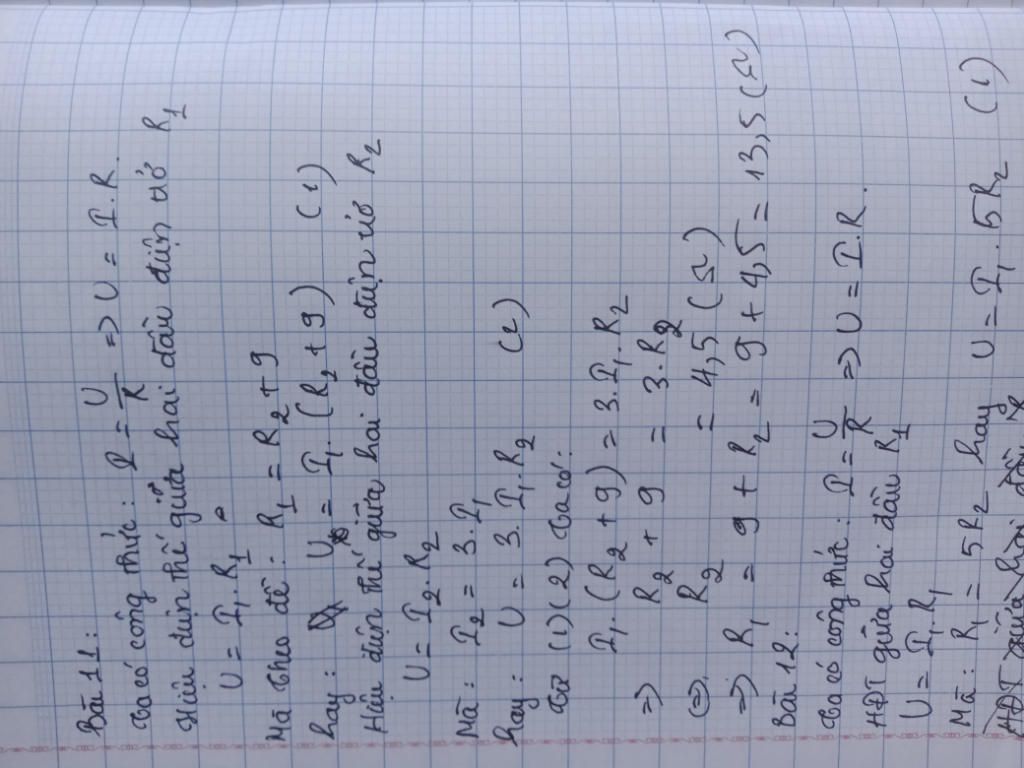 Bài 11:
Ta có công thức: I = U/R => U = I.R.
Hiệu điện thế giữa hai đầu điện trở R1
U = I1.R1
Mà theo đề: R1 = R2 + 9
hay: U = I1.(R2 + 9) (1)
Hiệu điện thế giữa hai đầu điện trở R2
U = I2.R2
Mà: I2 = 3.I1
hay: U = 3.I1.R2 (2)
Từ (1)(2) ta có:
I1.(R2 + 9) = 3.I1.R2
=> R2 + 9 = 3.R2
<=> R2 = 4,5 (Ω)
=> R1 = 9 + R2 = 9 + 4,5 = 13,5 (Ω)
Bài 12:
Ta có công thức: I = U/R => U = I.R.
HĐT giữa hai đầu R1
U = I1.R1
Mà: R1 = 5R2 hay U = I1.5R2 (1)
HĐT giữa hai đầu